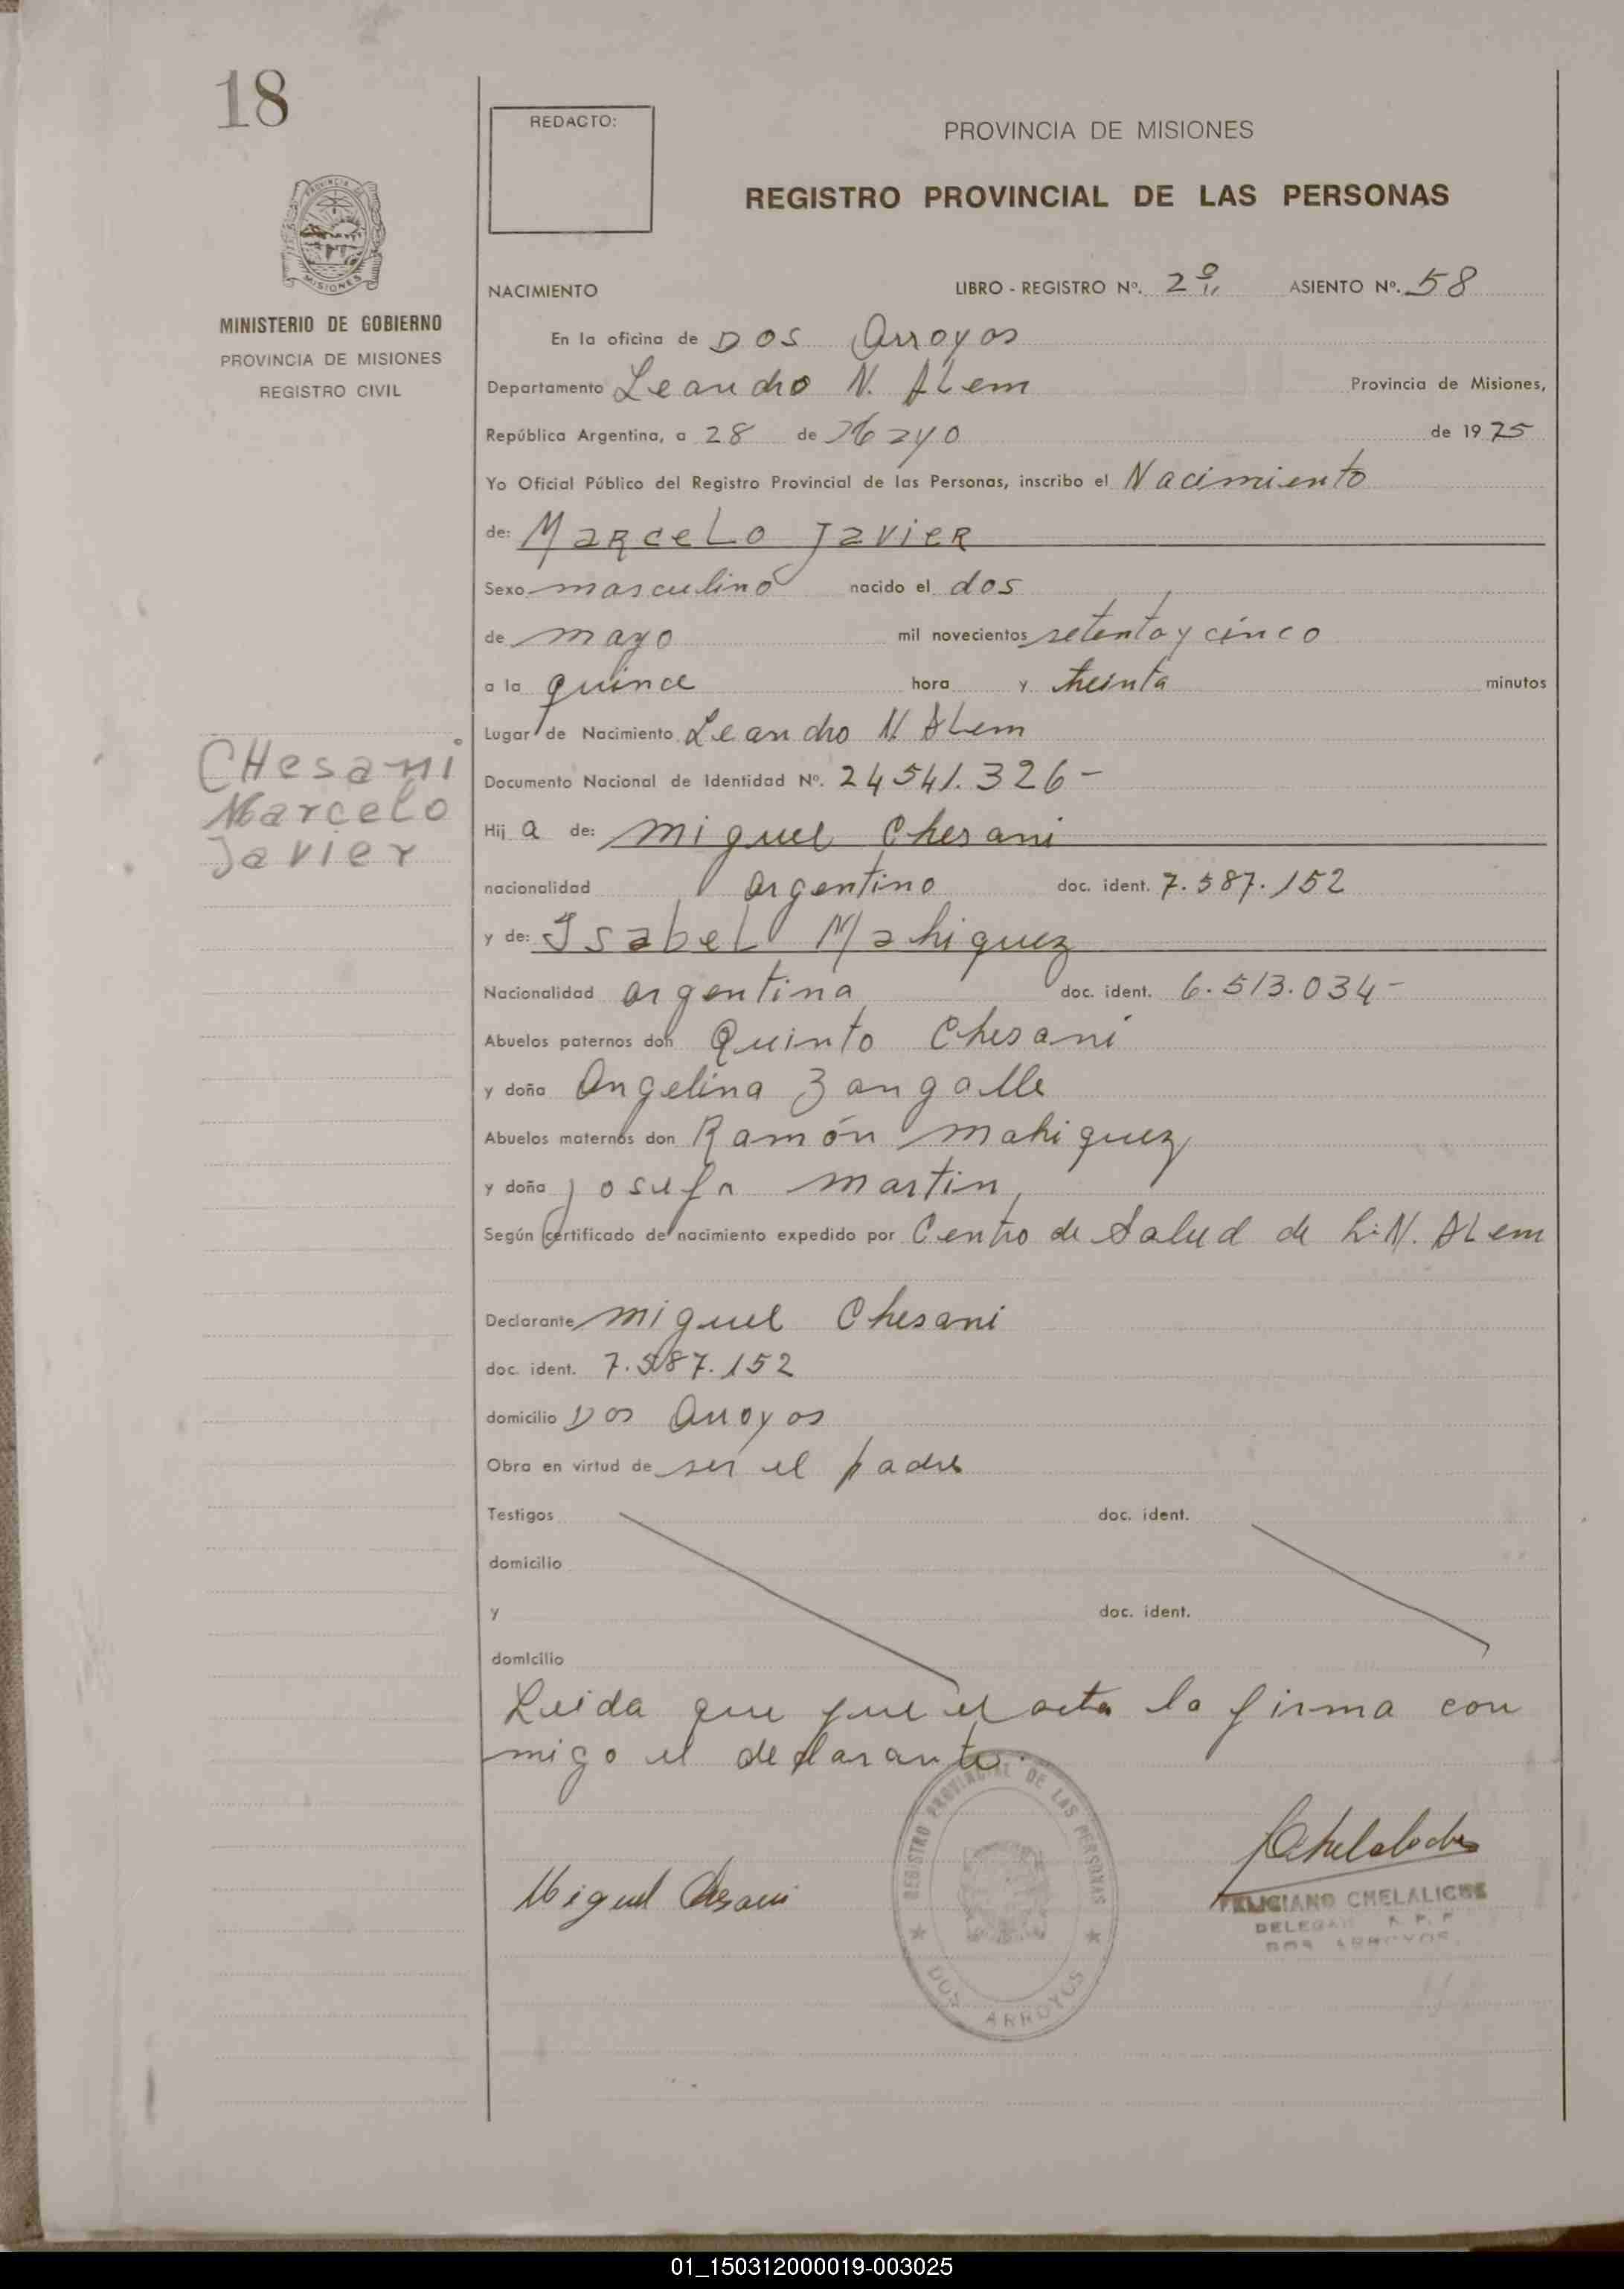 18
REDACTO:
PROVINCIA DE MISIONES
REGISTRO PROVINCIAL DE LAS PERSONAS
PROVINCIA DE
MISIONES
MINISTERIO DE GOBIERNO
PROVINCIA DE MISIONES
REGISTRO CIVIL
NACIMIENTO LIBRO - REGISTRO Nº. 2º ASIENTO Nº. 58
En la oficina de Dos Arroyos
Departamento Leandro N. ALem Provincia de Misiones,
República Argentina, a 28 de Mayo de 1975
Yo Oficial Público del Registro Provincial de las Personas, inscribo el Nacimiento
de: MARceLo JavieR
Sexo masculino nacido el dos
de mayo mil novecientos setenta y cinco
a la quince hora y treinta minutos
Lugar de Nacimiento Leandro N. ALem
CHesani
Marcelo
Javier
Documento Nacional de Identidad Nº. 24541.326-
Hij a de: Miguel Chesani
nacionalidad argentino doc. ident. 7.587.152
y de: IsabeL Mahiquez
Nacionalidad argentina doc. ident. 6.513.034-
Abuelos paternos don Quinto Chesani
y doña Angelina Zangalle
Abuelos maternos don Ramón Mahiquez
y doña Josefa Martin,
Según certificado de nacimiento expedido por Centro de Salud de L.N. ALem
Declarante Miguel Chesani
doc. ident. 7.587.152
domicilio Dos Arroyos
Obra en virtud de ser el padre
Testigos doc. ident.
domicilio
y doc. ident.
domicilio
Leida que fue el acta la firma con
migo el declarante.
REGISTRO PROVINCIAL DE LAS PERSONAS
DOS ARROYOS
Miguel Chesani
FELICIANO CHELALICHE
DOS ARROYOS
01_150312000019-003025